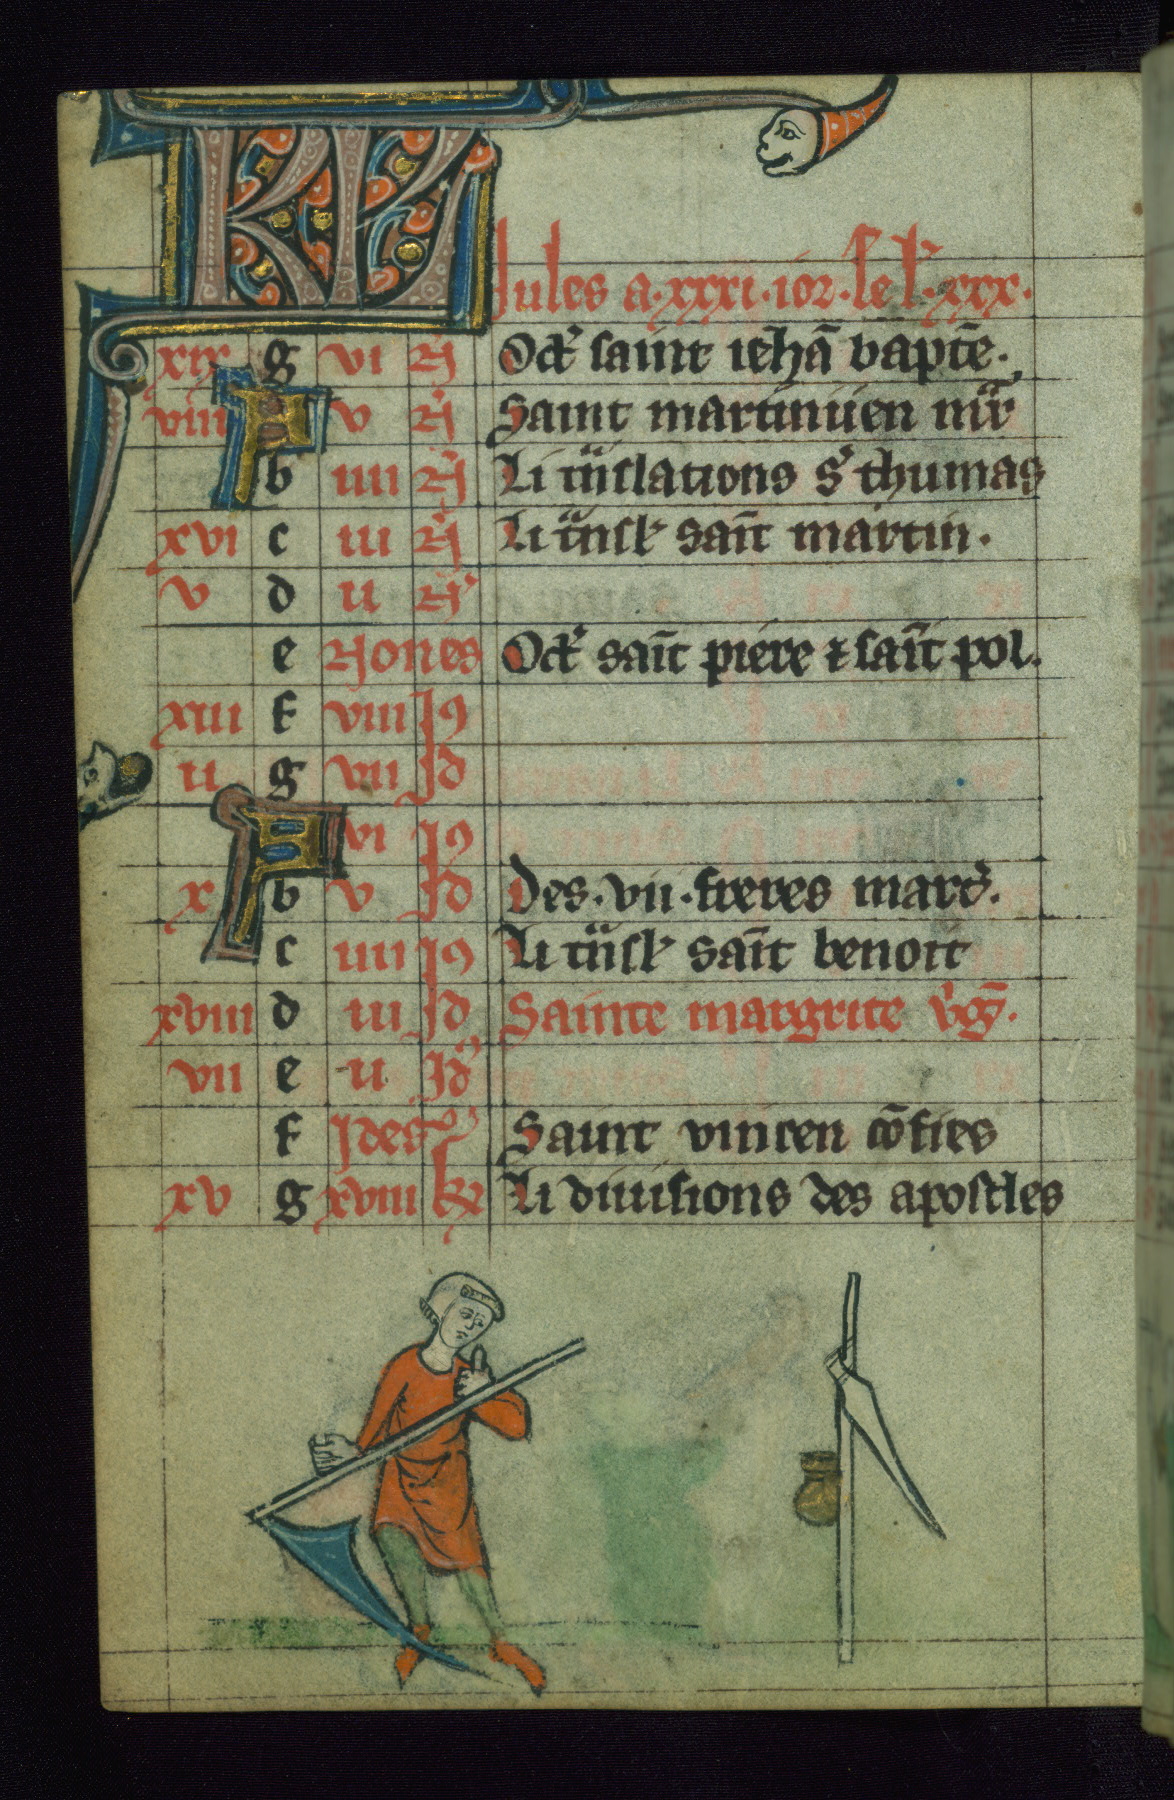 KL Jules a .xxxi. ior. le l'. xxx.
xix g vi N Oct' saint iehā baptē.
viii A v N Saint martinuen mr̄
b iiii N Li trāslations s' thumas
xvi c iii N Li trāsl' sait̄ martin.
v d ii N
e Nones Oct' sait̄ piere ⁊ sait̄ pol.
xiii f viii Id
ii g vii Id
A vi Id
x b v Id Des .vii. freres mart'.
c iiii Id Li trāsl' sait̄ benoit
xviii d iii Id Sainte margrite v'ḡ.
vii e ii Id
f Ides Saint vincen cōfies
xv g xviii kl Li diuisions des apostles